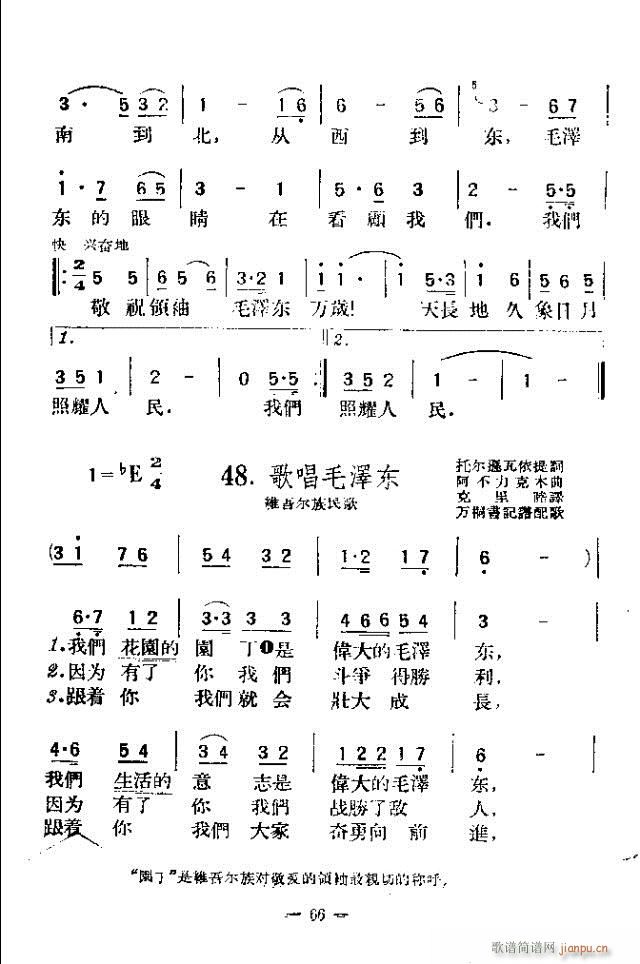 3 · 5 3 2 | 1 - 1 6 | 6 - 5 6 | 3 - 6 7
南 到 北, 从 西 到 东, 毛澤
1 · 7 6 5 | 3 - 1 | 5 · 6 3 | 2 - 5·5
东 的 眼 睛 在 看顧我 們. 我們
快 兴奋地
2/4 5 5 | 5 6 5 | 3·2 1 | 1 1· | 5·3 | 1 6 | 5 5 5 2
敬 祝領袖 毛澤东 万歲! 天長地久象日月
1. 2.
3 5 1 | 2 - | 0 5·5 :| 3 5 1 | 1 - | 1 -
照耀人 民. 我們 照耀人 民.
1=♭E 2/4 48. 歌唱毛澤东
維吾尔族民歌
托尔遜瓦依提詞
阿不力克木曲
克里 譯
万桐書記譜配歌
(3 1 7 6 | 5 4 3 2 | 1·2 1 7 | 6 - )
6·7 1 2 | 3·3 3 3 | 4 6 6 5 4 | 3 -
1.我們 花園的 園 丁❶是 偉大的毛澤 东,
2.因为 有了 你 我們 斗爭 得勝 利,
3.跟着 你 我們就会 壯大 成 長,
4·6 5 4 | 3 4 3 2 | 1 2 2 1 7 | 6 -
我們 生活的 意 志是 偉大的毛澤 东,
因为 有了 你 我們 战勝了敌 人,
跟着 你 我們大家 奋勇向 前 進,
“園丁”是維吾尔族对敬爱的領袖最親切的称呼。
— 66 —
歌谱简谱网 jianpu.cn